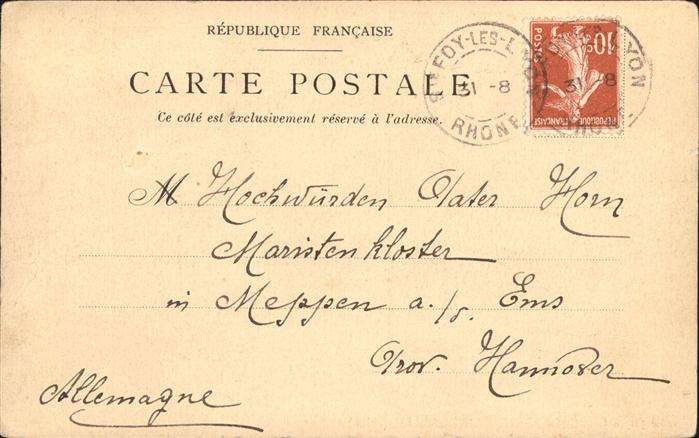 RÉPUBLIQUE FRANÇAISE
CARTE POSTALE
Ce côté est exclusivement réservé à l'adresse.
STE FOY-LES-LYON
31 -8
RHONE
10c
POSTES
RÉPUBLIQUE FRANÇAISE
LYON
31 -8
RHONE
M Hochwürden Pater Horn
Maristenkloster
in Meppen a./d. Ems
Prov. Hannover
Allemagne